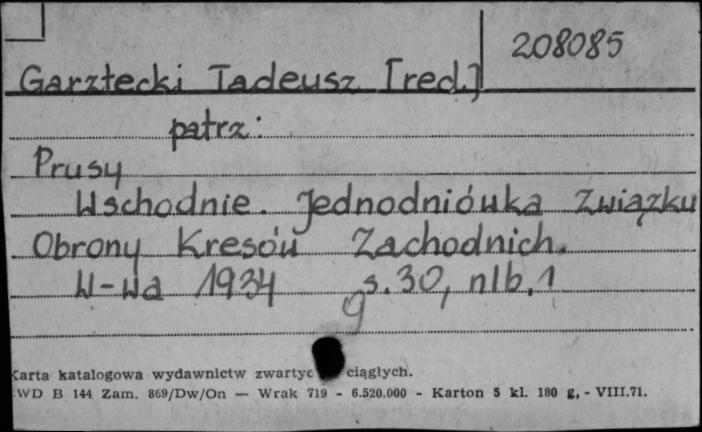 208085
Garztecki Tadeusz [red.]
patrz:
Prusy
Wschodnie. Jednodniówka Związku
Obrony Kresów Zachodnich.
W-wa 1934 s. 30, nlb. 1
g
Karta katalogowa wydawnictw zwartyc ciągłych.
WD B 144 Zam. 869/Dw/On — Wrak 719 - 6.520.000 - Karton 5 kl. 180 g, - VIII.71.